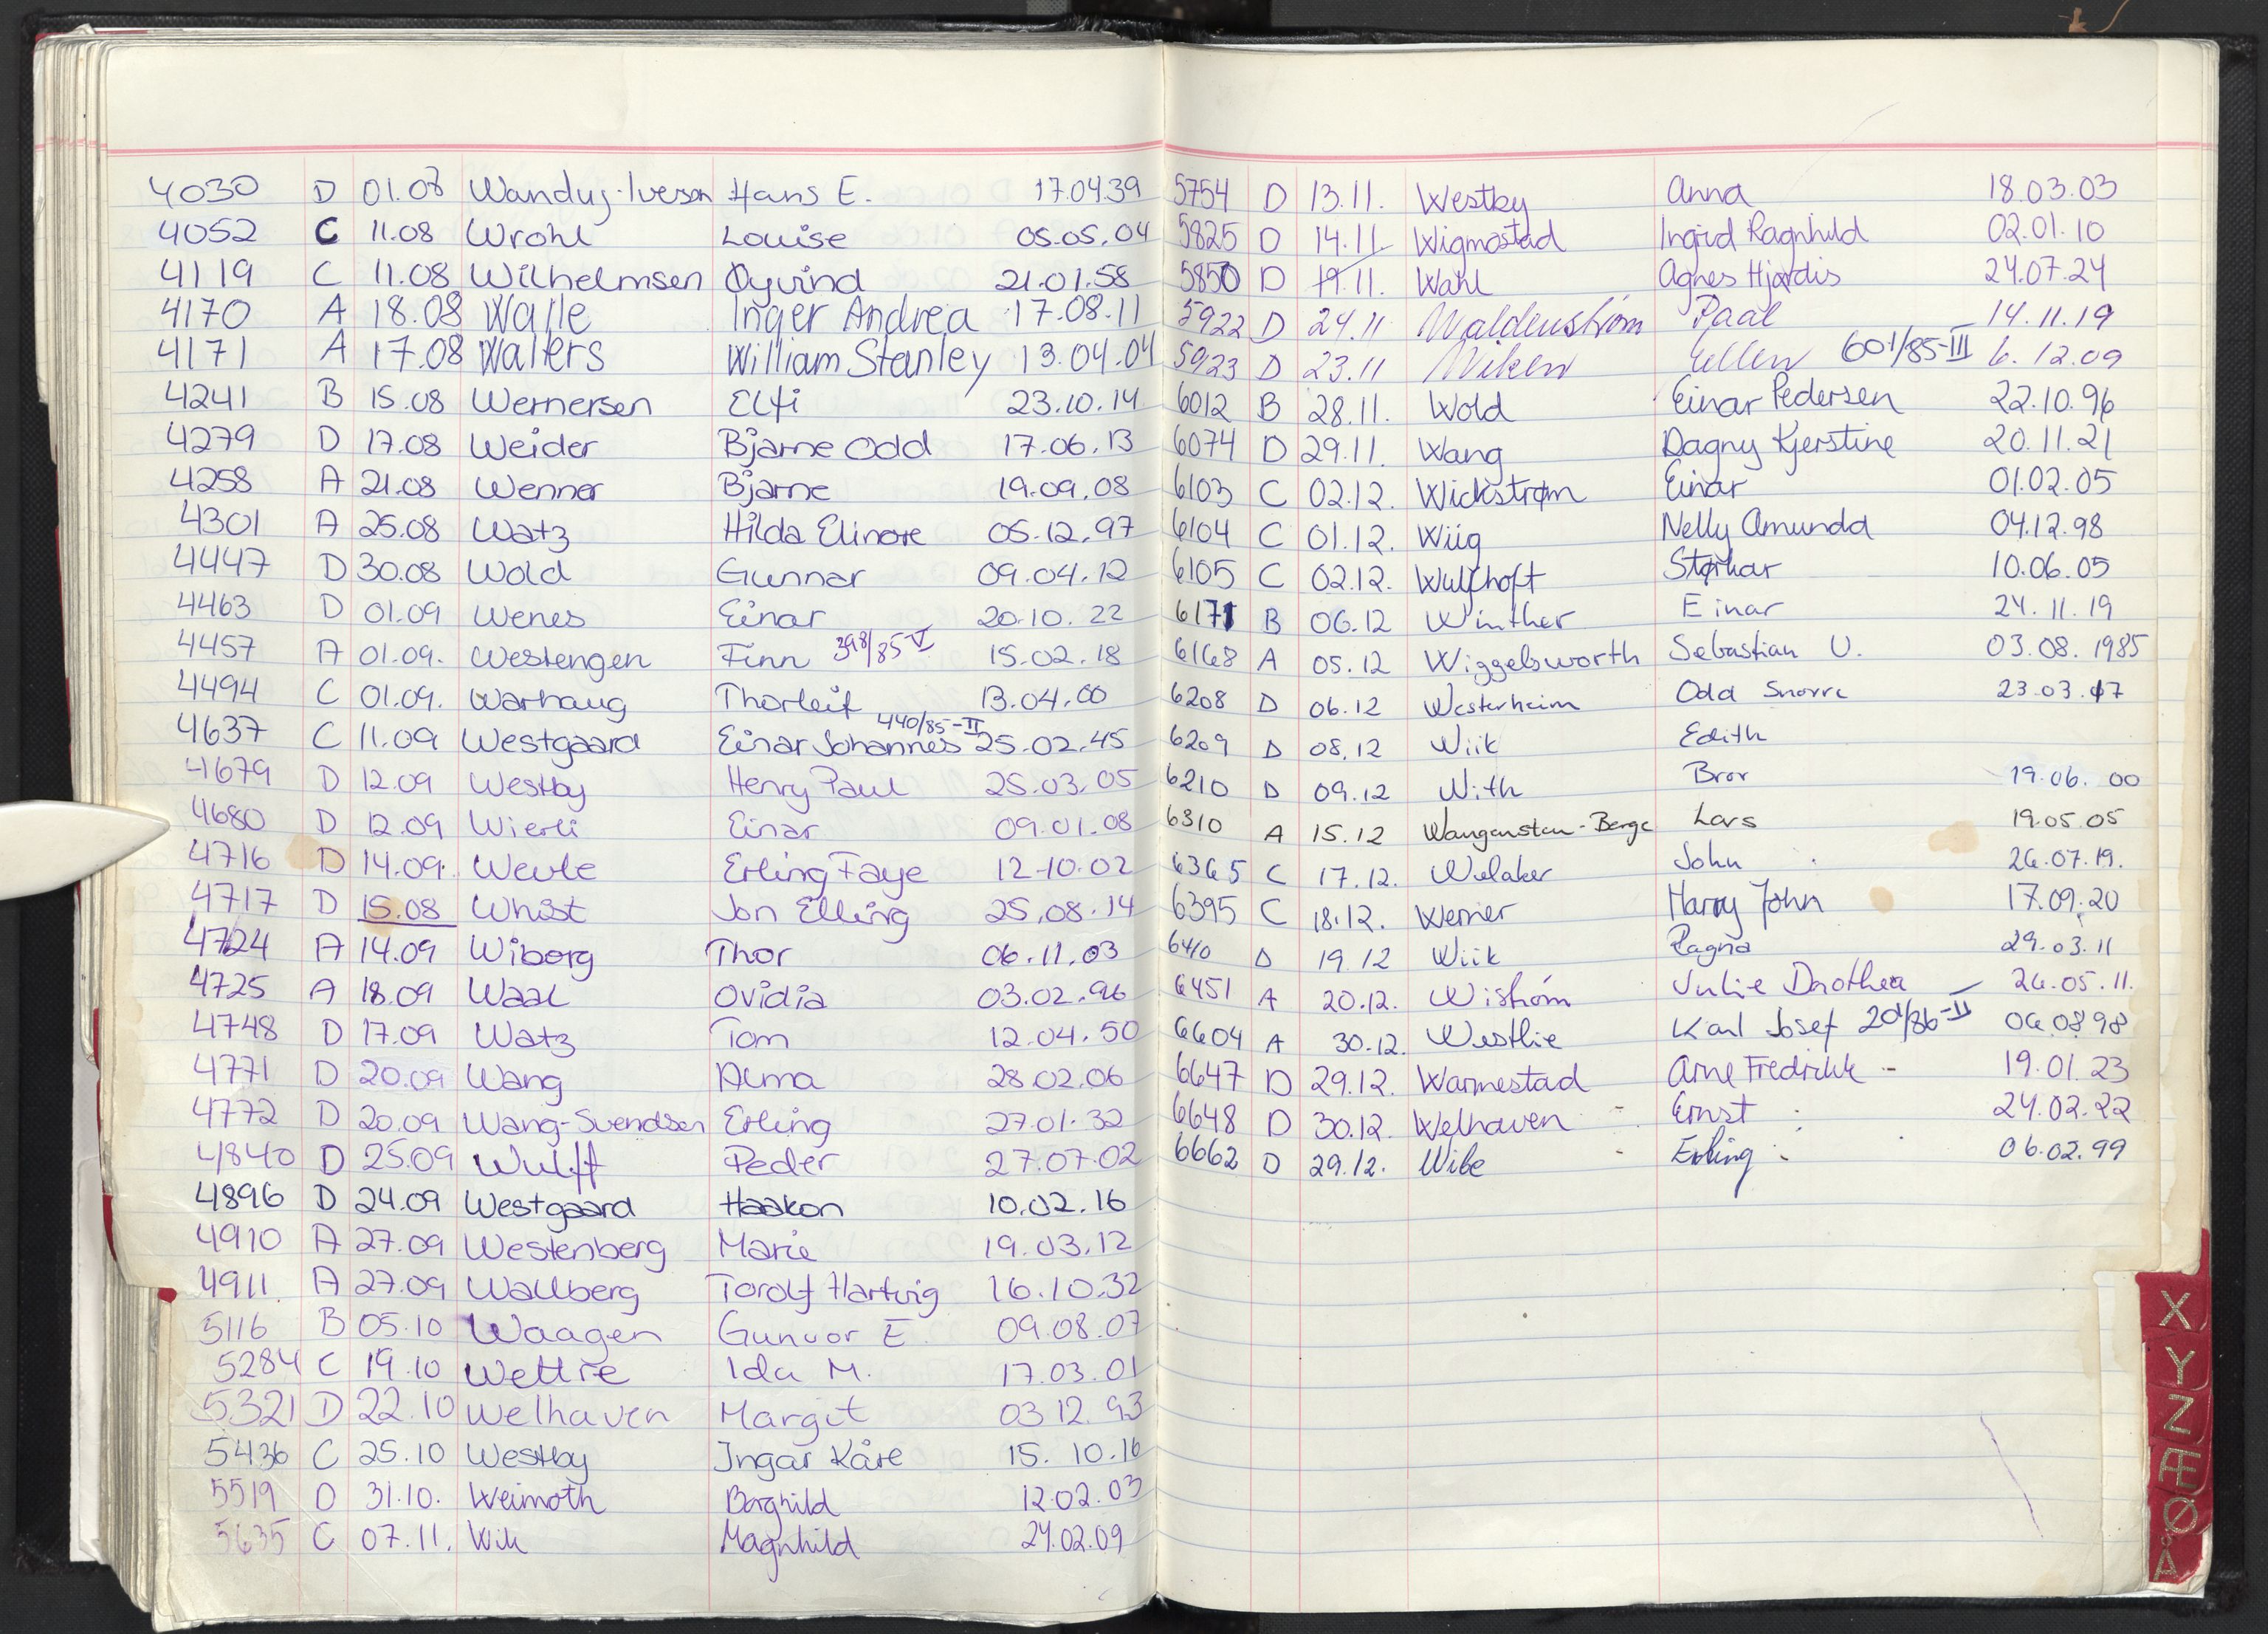 4030 D 01.08 Wanduy-Iversen Hans E. 17.04.39
4052 C 11.08 Wrohl Louise 05.05.04
4119 C 11.08 Wilhelmsen Øyvind 21.01.58
4170 A 18.08 Walle Inger Andrea 17.08.11
4171 A 17.08 Walters William Stanley 13.04.04
4241 B 15.08 Wernersen Elfi 23.10.14
4279 D 17.08 Weider Bjarne Odd 17.06.13
4258 A 21.08 Wenner Bjarne 19.09.08
4301 A 25.08 Watz Hilda Elinore 05.12.97
4447 D 30.08 Wold Gunnar 09.04.12
4463 D 01.09 Wenes Einar 20.10.22
4457 A 01.09. Westengen Finn 398/85 V 15.02.18
4494 C 01.09. Warhaug Thorleif 13.04.00
4637 C 11.09 Westgaard Einar Johannes 440/85-II 25.02.45
4679 D 12.09 Westby Henry Paul 25.03.05
4680 D 12.09 Wierli Einar 09.01.08
4716 D 14.09. Wevle Erling Faye 12.10.02
4717 D 15.08 Whist Jon Elling 25.08.14
4724 A 14.09 Wiborg Thor 06.11.03
4725 A 18.09 Waal Ovidia 03.02.96
4748 D 17.09 Watz Tom 12.04.50
4771 D 20.09 Wang Alma 28.02.06
4772 D 20.09 Wang-Svendsen Erling 27.01.32
4840 D 25.09 Wulff Peder 27.07.02
4896 D 24.09 Westgaard Haakon 10.02.16
4910 A 27.09 Westenberg Marie 19.03.12
4911 A 27.09 Wallberg Torolf Hartvig 16.10.32
5116 B 05.10 Waagen Gunvor E. 09.08.07
5284 C 19.10 Wettre Ida M. 17.03.01
5321 D 22.10 Welhaven Margit 03 12. 93
5436 C 25.10 Westby Ingar Kåre 15. 10.16
5519 D 31.10. Weimoth Borghild 12.02.03
5635 C 07.11. Wik Magnhild 24.02.09
5754 D 13.11. Westby Anna 18.03.03
5825 D 14.11 Wigmostad Ingrid Ragnhild 02.01.10
5850 D 19.11. Wahl Agnes Hjørdis 24.07.24
5922 D 24.11 Waldenstrøm Paal 14.11.19
5923 D 23.11 Wiken Ellen 601/85-III 6.12.09
6012 B 28.11. Wold Einar Pedersen 22.10.96
6074 D 29.11. Wang Dagny Kjerstine 20.11.21
6103 C 02.12. Wickstrøm Einar 01.02.05
6104 C 01.12. Wiig Nelly Amunda 04.12.98
6105 C 02.12. Wulfhoft Størkar 10.06.05
6171 B 06.12 Winther Einar 24.11.19
6168 A 05.12 Wiggelsworth Sebastian U. 03.08.1985
6208 D 06.12 Westerheim Odd Snorre 23.03.17
6209 D 08.12 Wiik Edith
6210 D 09.12 With Bror 19.06.00
6310 A 15.12 Wangensten-Berge Lars 19.05.05
6365 C 17.12. Welaker John 26.07.19.
6395 C 18.12. Werner Harry John 17.09.20
6410 D 19.12 Wiik Ragna 29.03.11
6451 A 20.12. Wistrøm Julie Dorothea 26.05.11.
6604 A 30.12. Westlie Karl Josef 201/86-II 06.08.98
6647 D 29.12. Warmestad Arne Fredrikk - 19.01.23
6648 D 30.12. Welhaven - Ernst 24.02.22
6662 D 29.12. Wibe - Erling 06.02.99
X
Y
Z
Æ
Ø
Å